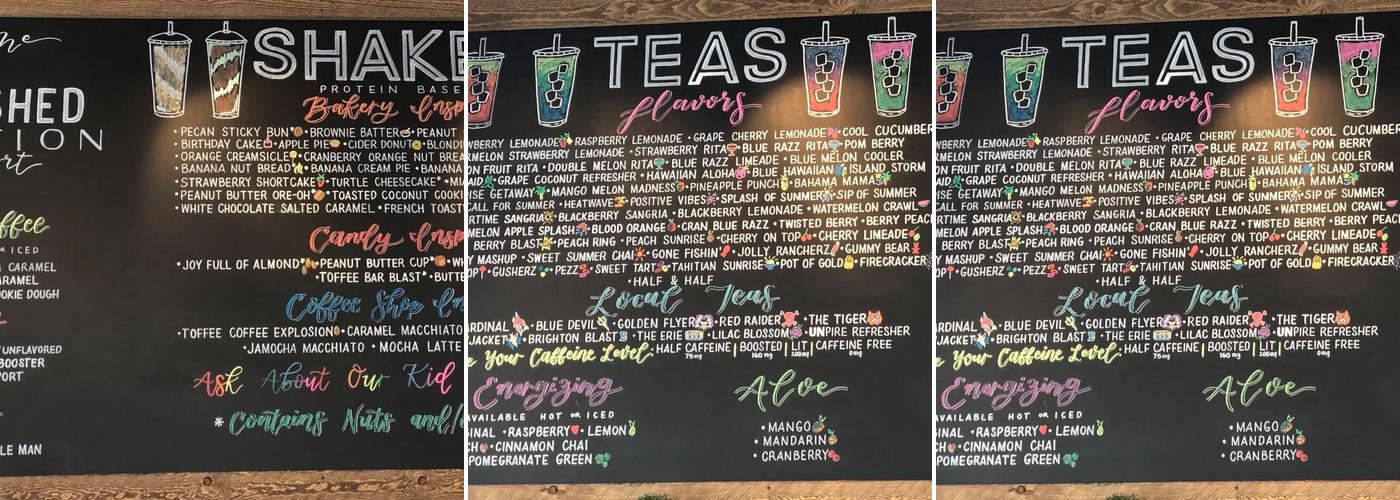 SHED
TION
SHAKE
PROTEIN BASE
Bakery Insp
• PECAN STICKY BUN* • BROWNIE BATTER • PEANUT
• BIRTHDAY CAKE • APPLE PIE • CIDER DONUT • BLONDI
• ORANGE CREAMSICLE • CRANBERRY ORANGE NUT BREA
• BANANA NUT BREAD • BANANA CREAM PIE • BANANA
• STRAWBERRY SHORTCAKE • TURTLE CHEESECAKE* • MI
• PEANUT BUTTER ORE-OH* • TOASTED COCONUT COOKI
• WHITE CHOCOLATE SALTED CARAMEL • FRENCH TOAST
Candy Insp
• JOY FULL OF ALMOND* • PEANUT BUTTER CUP* • WH
• TOFFEE BAR BLAST* • BUTTE
Coffee Shop In
• TOFFEE COFFEE EXPLOSION • CARAMEL MACCHIATO
• JAMOCHA MACCHIATO • MOCHA LATTE
Ask About Our Kid
* Contains Nuts and/o
offee
OR ICED
CARAMEL
ARAMEL
OKIE DOUGH
UNFLAVORED
BOOSTER
PORT
LE MAN
TEAS
flavors
WBERRY LEMONADE • RASPBERRY LEMONADE • GRAPE CHERRY LEMONADE • COOL CUCUMBER
RMELON STRAWBERRY LEMONADE • STRAWBERRY RITA • BLUE RAZZ RITA • POM BERRY
ON FRUIT RITA • DOUBLE MELON RITA • BLUE RAZZ LIMEADE • BLUE MELON COOLER
AID • GRAPE COCONUT REFRESHER • HAWAIIAN ALOHA • BLUE HAWAIIAN • ISLAND STORM
ISE GETAWAY • MANGO MELON MADNESS • PINEAPPLE PUNCH • BAHAMA MAMA
CALL FOR SUMMER • HEATWAVE • POSITIVE VIBES • SPLASH OF SUMMER • SIP OF SUMMER
RTIME SANGRIA • BLACKBERRY SANGRIA • BLACKBERRY LEMONADE • WATERMELON CRAWL
MELON APPLE SPLASH • BLOOD ORANGE • CRAN BLUE RAZZ • TWISTED BERRY • BERRY PEAC
BERRY BLAST • PEACH RING • PEACH SUNRISE • CHERRY ON TOP • CHERRY LIMEADE
Y MASHUP • SWEET SUMMER CHAI • GONE FISHIN' • JOLLY RANCHERZ • GUMMY BEAR
OP • GUSHERZ • PEZZ • SWEET TART • TAHITIAN SUNRISE • POT OF GOLD • FIRECRACKER
• HALF & HALF
Local Teas
ARDINAL • BLUE DEVIL • GOLDEN FLYER • RED RAIDER • THE TIGER
JACKET • BRIGHTON BLAST B • THE ERIE • LILAC BLOSSOM • UNPIRE REFRESHER
e Your Caffeine Level: HALF CAFFEINE | BOOSTED | LIT | CAFFEINE FREE
75mg 160 mg 200mg 0mg
Energizing
AVAILABLE HOT OR ICED
GINAL • RASPBERRY • LEMON
CH • CINNAMON CHAI
POMEGRANATE GREEN
Aloe
• MANGO
• MANDARIN
• CRANBERRY
TEAS
flavors
WBERRY LEMONADE • RASPBERRY LEMONADE • GRAPE CHERRY LEMONADE • COOL CUCUMBER
RMELON STRAWBERRY LEMONADE • STRAWBERRY RITA • BLUE RAZZ RITA • POM BERRY
ON FRUIT RITA • DOUBLE MELON RITA • BLUE RAZZ LIMEADE • BLUE MELON COOLER
AID • GRAPE COCONUT REFRESHER • HAWAIIAN ALOHA • BLUE HAWAIIAN • ISLAND STORM
ISE GETAWAY • MANGO MELON MADNESS • PINEAPPLE PUNCH • BAHAMA MAMA
CALL FOR SUMMER • HEATWAVE • POSITIVE VIBES • SPLASH OF SUMMER • SIP OF SUMMER
RTIME SANGRIA • BLACKBERRY SANGRIA • BLACKBERRY LEMONADE • WATERMELON CRAWL
MELON APPLE SPLASH • BLOOD ORANGE • CRAN BLUE RAZZ • TWISTED BERRY • BERRY PEAC
BERRY BLAST • PEACH RING • PEACH SUNRISE • CHERRY ON TOP • CHERRY LIMEADE
Y MASHUP • SWEET SUMMER CHAI • GONE FISHIN' • JOLLY RANCHERZ • GUMMY BEAR
OP • GUSHERZ • PEZZ • SWEET TART • TAHITIAN SUNRISE • POT OF GOLD • FIRECRACKER
• HALF & HALF
Local Teas
ARDINAL • BLUE DEVIL • GOLDEN FLYER • RED RAIDER • THE TIGER
JACKET • BRIGHTON BLAST B • THE ERIE • LILAC BLOSSOM • UNPIRE REFRESHER
e Your Caffeine Level: HALF CAFFEINE | BOOSTED | LIT | CAFFEINE FREE
75mg 160 mg 200mg 0mg
Energizing
AVAILABLE HOT OR ICED
GINAL • RASPBERRY • LEMON
CH • CINNAMON CHAI
POMEGRANATE GREEN
Aloe
• MANGO
• MANDARIN
• CRANBERRY